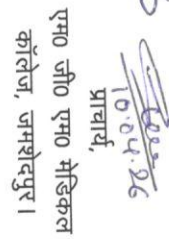 10.04.26
प्राचार्य,
एम० जी० एम० मेडिकल
कॉलेज, जमशेदपुर।